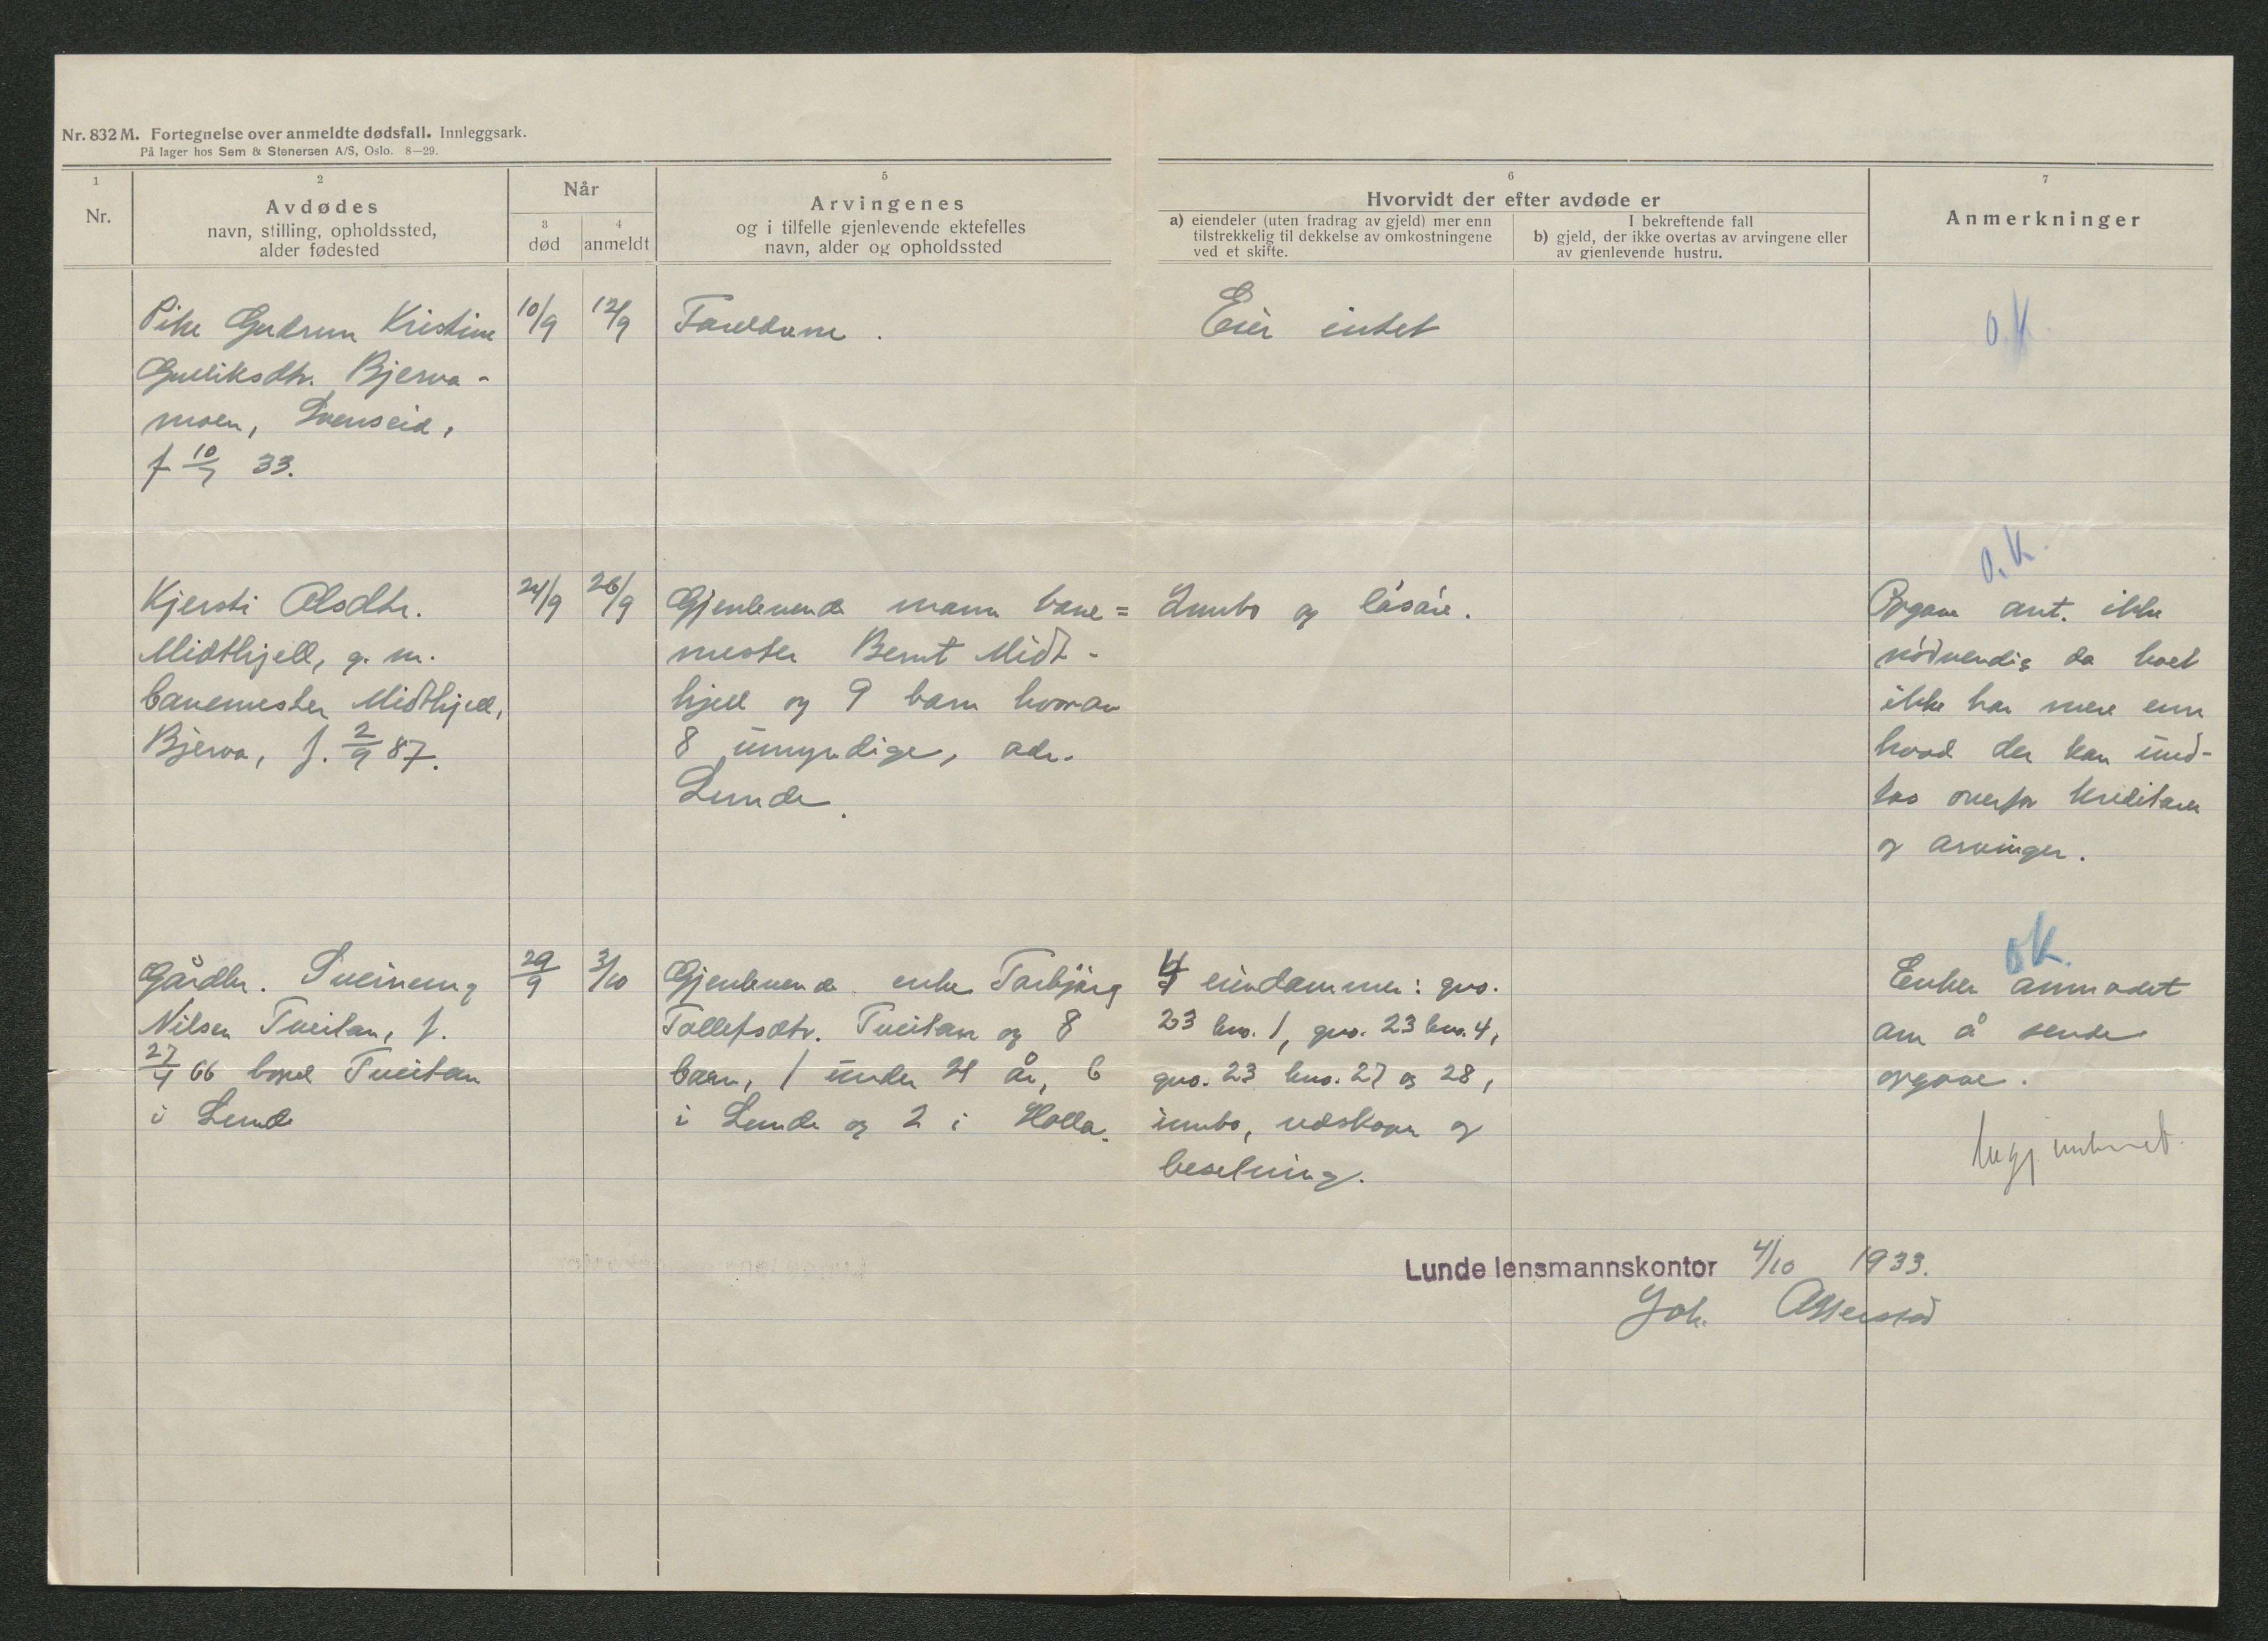 Nr. 832 M. Fortegnelse over anmeldte dødsfall. Innleggsark.
På lager hos Sem & Stenersen A/S, Oslo. 8—29.
1
Nr.
2
Avdødes
navn, stilling, opholdssted,
alder fødested
Når
3
død
4
anmeldt
5
Arvingenes
og i tilfelle gjenlevende ektefelles
navn, alder og opholdssted
6
Hvorvidt der efter avdøde er
a) eiendeler (uten fradrag av gjeld) mer enn
tilstrekkelig til dekkelse av omkostningene
ved et skifte.
I bekreftende fall
b) gjeld, der ikke overtas av arvingene eller
av gjenlevende hustru.
7
Anmerkninger
Pike Gudrun Kristine
Gulliksdtr. Bjerva-
moen, Svenseid,
f 10/7 33.
10/9
12/9
Foreldrene.
Eier intet
O.K.
Kjersti Olsdtr.
Midtkjell, g. m.
banemester Midtkjell,
Bjerva, f. 2/9 87.
24/9
26/9
Gjenlevende mann bane=
mester Bernt Midt-
kjell og 9 barn hvorav
8 umyndige, adr.
Lunde.
Innbo og låsøre.
O.K.
Opgave ant. ikke
nødvendig da boet
ikke har mere enn
hvad der kan und-
tas overfor kreditorer
og arvinger.
Gårdbr. Sveinung
Nilsen Tveitan, f.
27/4 66 bopel Tveitan
i Lunde
29/9
3/10
Gjenlevende enke Torbjørg
Tollefsdtr. Tveitan og 8
barn, 1 under 21 år, 6
i Lunde og 2 i Holla.
4 eiendommer: gno.
23 bno. 1, gno. 23 bno. 4,
gno. 23 bno. 27 og 28,
innbo, redskaper og
besetning.
OK.
Enken anmodet
om å sende
opgave.
Lunde lensmannskontor 4/10 1933.
Joh.